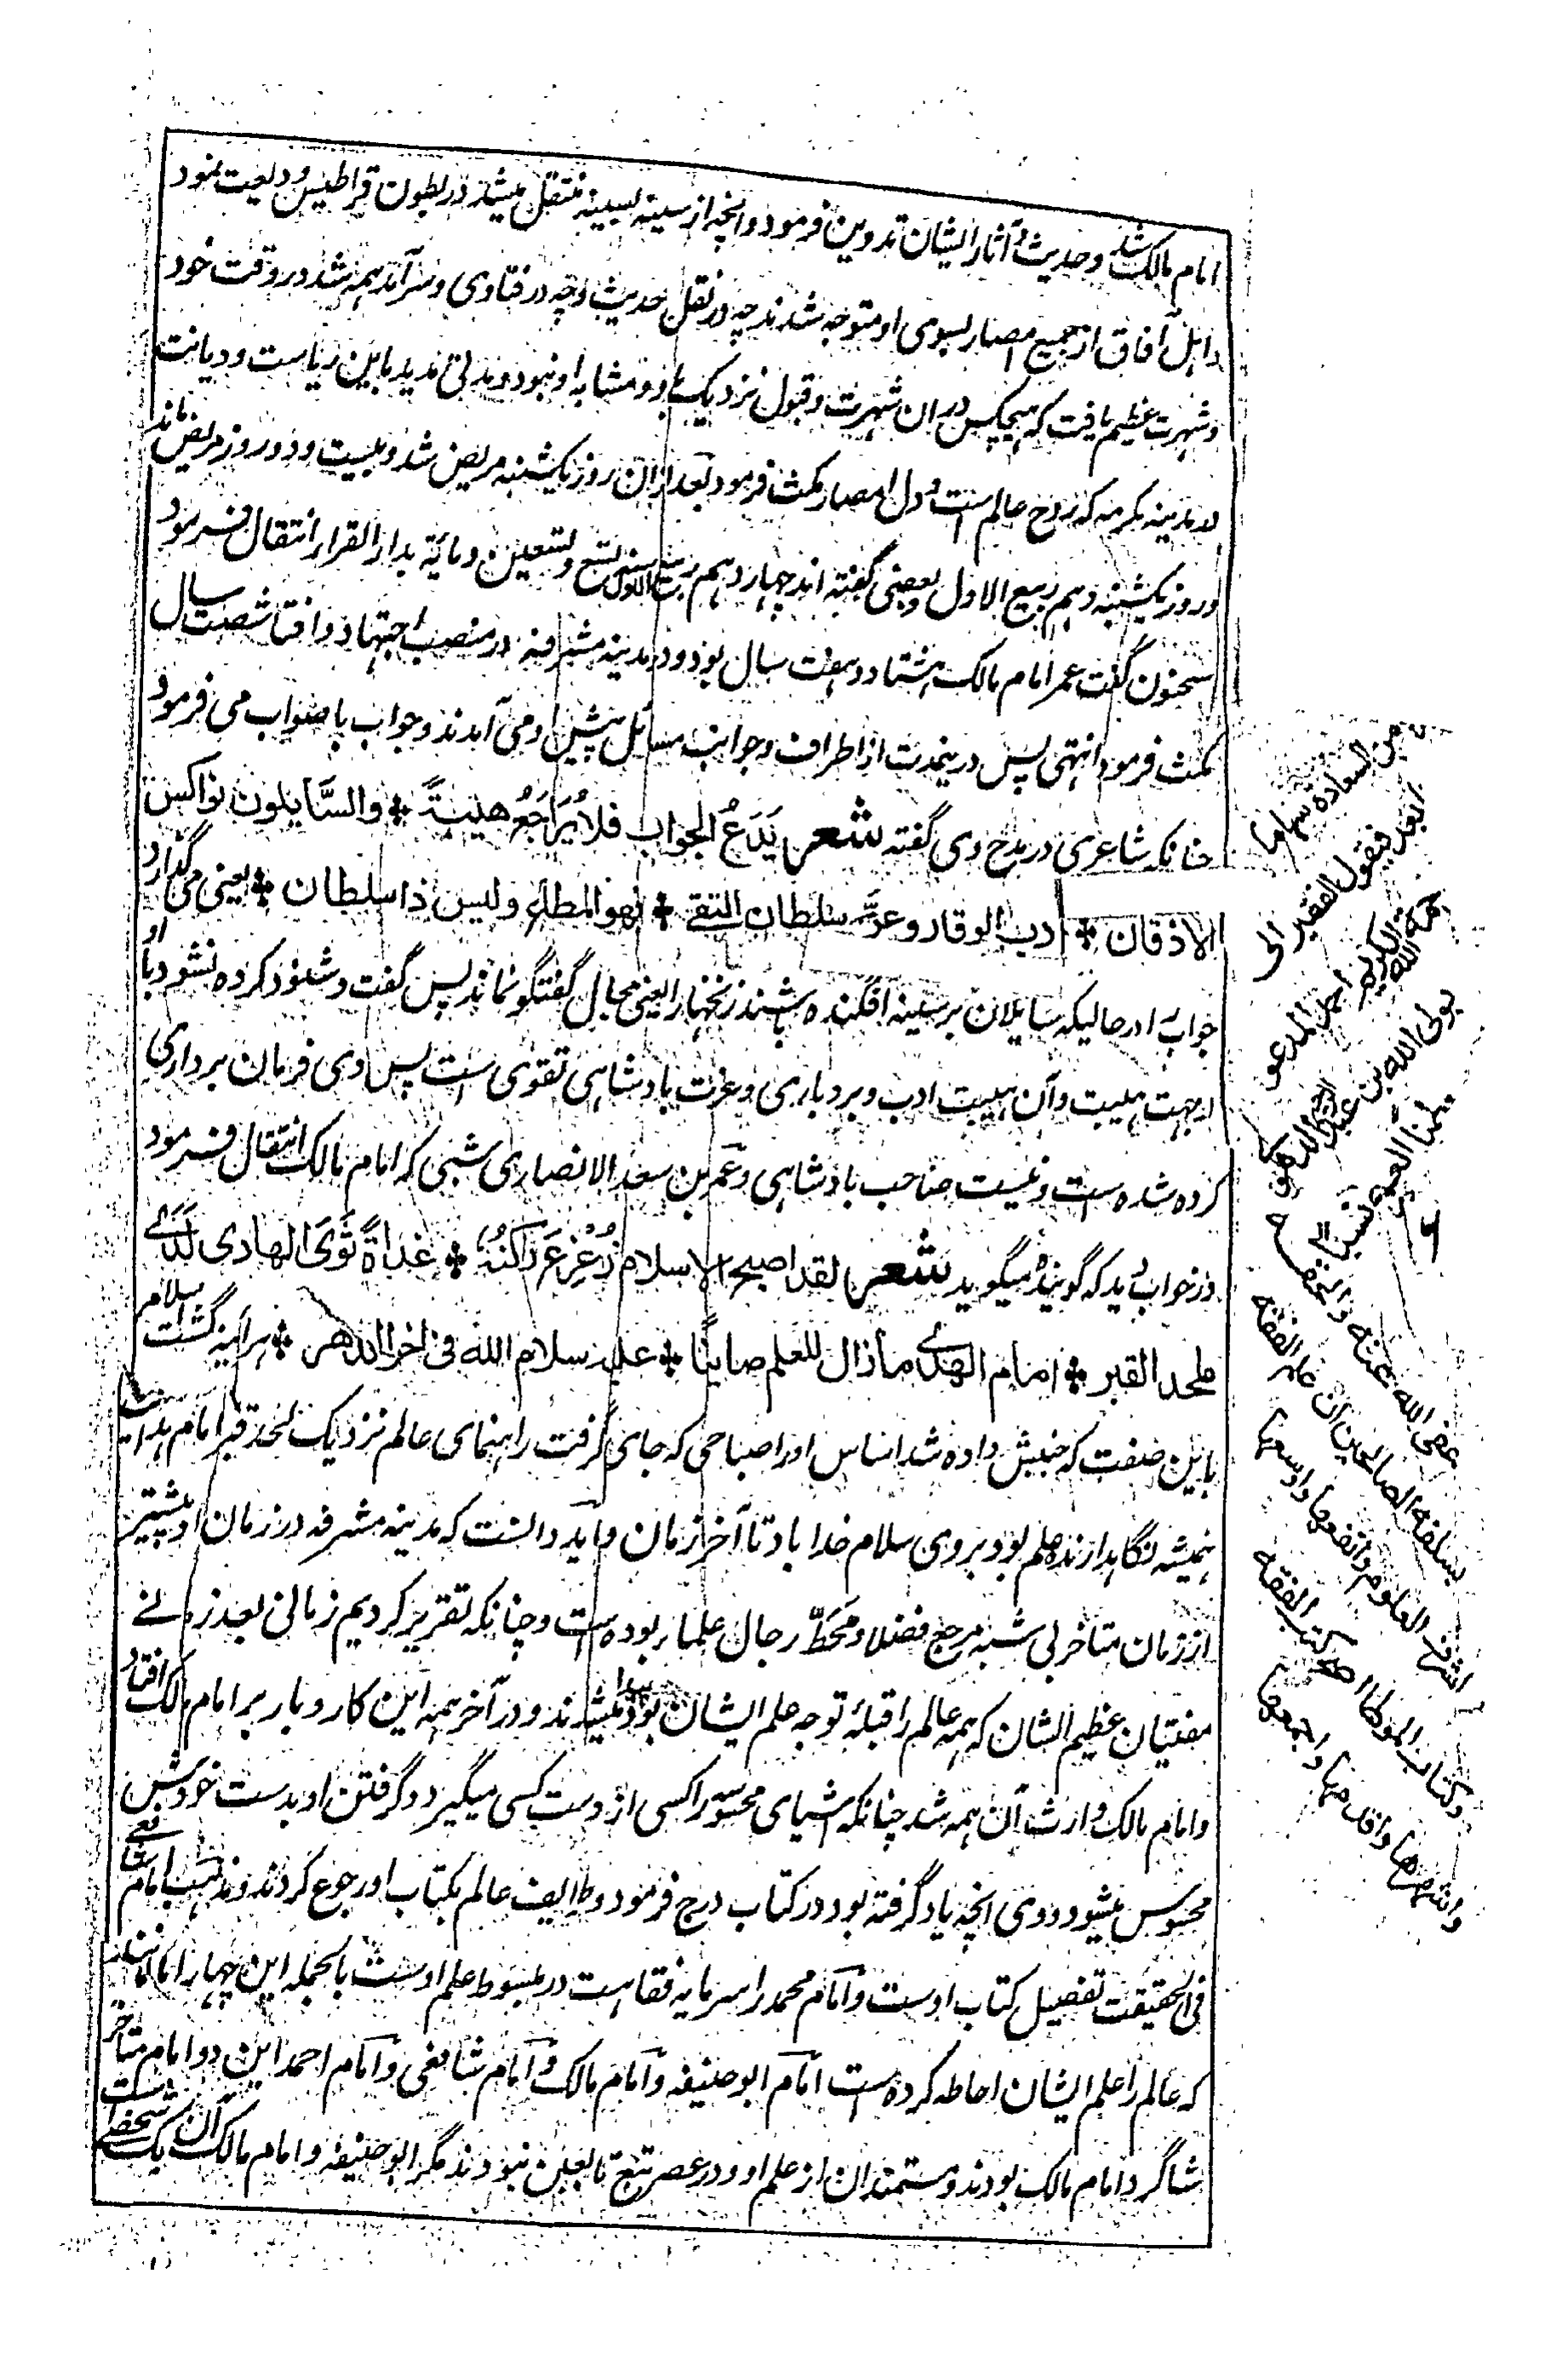 امام مالک شد وحدیث وآثار ایشان تدوین فرمود وانچه از سینه بسینه منتقل میشد در بطون قراطیس ودیعت نمود
واہل آفاق از جمیع امصار بسوی او متوجه شدند چه در نقل حدیث وچه در فتاوی وسرآمد ہمه شد در وقت خود
وشهرت عظیم یافت که ہیچکس دران شهرت وقبول نزدیک باو ومشابه او نبود ومدتی مدید باین ریاست ودیانت
در مدینه مکرمه که روح عالم ست ودل امصار مکث فرمود بعد ازان روز یکشنبه مریض شد وبیست ودو روز مریض ماند
وروز یکشنبه دہم ربیع الاول وبعضی گفته اند چهاردہم ربیع الاول سنه تسع وتسعین ومائة بدار القرار انتقال فرمود
سحنون گفت عمر امام مالک ہشتاد وہفت سال بود ودر مدینه مشرفه در منصب اجتهاد وافتا شصت سال
مکث فرمود انتهی پس درینمدت از اطراف وجوانب مسائل پیش او می آمدند وجواب باصواب می فرمود
چنانکه شاعری در مدح وی گفته شعر یَدَعُ الجواب فلا یُرَاجَعُ هیبةً * والسَّایلون نواکس
الاذقان * ادب الوقار وعزّ سلطان التقے * فهو المطاع ولیس ذا سلطان * یعنی می گذارد
جواب را درحالیکه سایلان بر سینه افگنده باشند زنخهارا یعنی مجال گفتگو نماند پس گفت وشنود کرده نشود با او
ازجهت ہیبت وآن ہیبت ادب وبردباری وعزت بادشاہی تقوی ست پس وی فرمان برداری
کرده شده ست ونیست صاحب بادشاہی وعمر بن سعد الانصاری شبی که امام مالک انتقال فرمود
در خواب دید که گوینده میگوید شعر لقد اصبح الاسلام زُعْزِعَ رُکنُهُ * غداةً ثَوَی الهادی لَدَے
ملحد القبر * امام الهدے مازال للعلم صاینًا * علیه سلام الله فی اخر الدهر * ہرآئینه گشت اسلام
باین صفت که جنبش داده شد اساس اورا صباحی که جای گرفت راہنمای عالم نزدیک لحد قبر امام ہدایت
ہمیشه نگاہدارنده علم بود بروی سلام خدا باد تا آخر زمان وباید دانست که مدینه مشرفه در زمان او پیشتر
از زمان متاخر بی شبه مرجع فضلا ومَحَطّ رجال علما بوده ست وچنانکه تقریر کردیم زمانی بعد زمانے
مفتیان عظیم الشان که ہمه عالم را قبلۂ توجه علم ایشان بود پیدا میشدند ودر آخر ہمه این کار وبار بر امام مالک افتاد
وامام مالک وارث آن ہمه شد چنانکه اشیای محسوسه را کسی از دست کسی میگیرد وگرفتن او بدست خودش
محسوس میشود ووی انچه یاد گرفته بود در کتاب درج فرمود وطوایف عالم بکتاب او رجوع کردند ومذہب امام شافعے
فی الحقیقت تفصیل کتاب اوست وامام محمد را سرمایه فقاہت در مبسوط علم اوست بالجمله این چهار امامانند
که عالم را علم ایشان احاطه کرده ست امام ابوحنیفه وامام مالک وامام شافعی وامام احمد این دو امام متاخر
شاگرد امام مالک بودند ومستمندان از علم او ودر عصر تبع تابعین نبودند مگر ابوحنیفه وامام مالک آن یک شخصے ست
من السادة
بعد فیقول الفقیر الی
رحمة الله الکریم احمد المدعو
بولی الله بن عبد الرحیم الدهلوی
العمری نسبا
عفی الله عنه
بسلفه الصالحین ان علم الفقه
اشرف العلوم وانفعها واوسعها
وکتاب الموطا اصح کتب الفقه
واشهرها واقدمها واجمعها